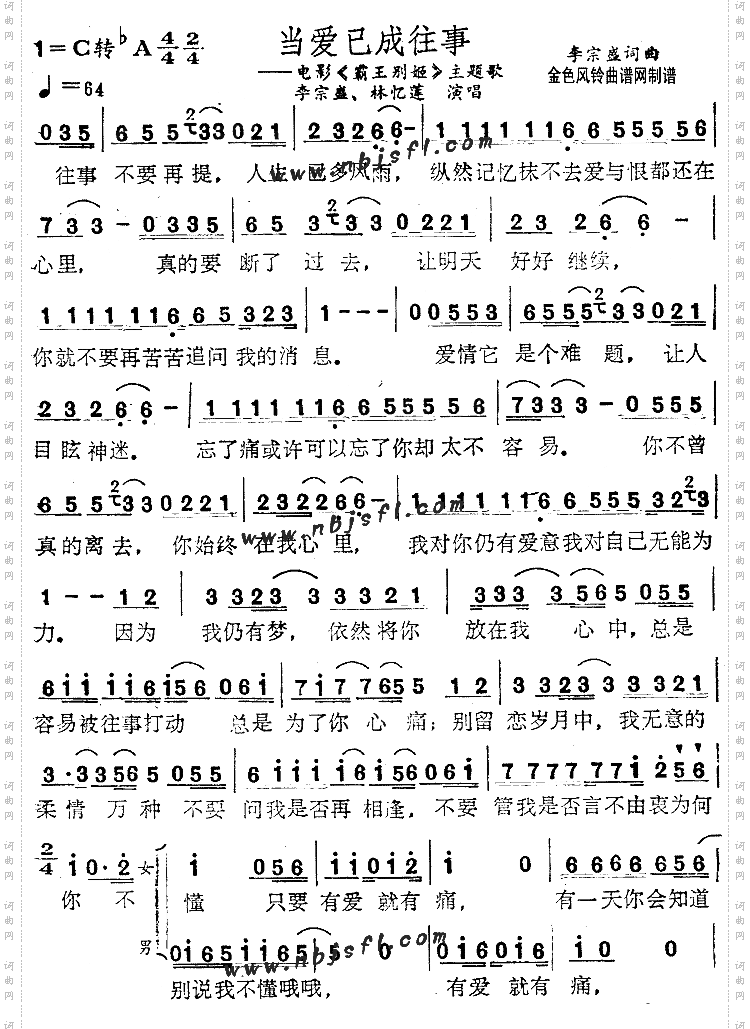 当爱已成往事
1=C转♭A 4/4 2/4
——电影《霸王别姬》主题歌
李宗盛词曲
♩=64
李宗盛、林忆莲 演唱
金色风铃曲谱网制谱
035 | 655 2 33021 | 23266- | 1111116655556 |
往事 不要再提，人生已多风雨，纵然记忆抹不去爱与恨都还在
733-0335 | 65 3 2 3 30221 | 23 26 6 - |
心里，真的要 断了 过去，让明天 好好 继续，
1111116 65323 | 1--- | 00553 | 6555 2 33021 |
你就不要再苦苦追问 我的消 息。爱情它 是个难 题，让人
23266- | 1111116655556 | 7333-0555 |
目眩神迷。忘了痛或许可以忘了你却太不 容易。你不曾
655 2 330221 | 232266- | 111111655553 2 3 |
真的离去，你始终 在我心里，我对你仍有爱意我对自己无能为
1--12 | 3323 3 3321 | 033 3 565055 |
力。因为 我仍有梦，依然将你 放在我 心中，总是
611 116156 061 | 717765 5 12 | 3 323 3 3321 |
容易被往事打动 总是 为了你 心 痛；别留 恋岁月中，我无意的
3·33565 055 | 6111 16156061 | 7777771·256 |
柔情 万种 不要 问我是否再 相逢，不要 管我是否言不由衷为何
2/4 10·2 女 1 056 | 11012 | 1 0 | 6666656 |
你 不 懂 只要 有爱 就有 痛，有一天你会知道
男 0165 1165 | 5 0 | 016016 | 10 |
别说我不懂哦哦，有爱 就有 痛，
www.nbjsfl.com
www.nbjsfl.com
www.nbjsfl.com
词曲网